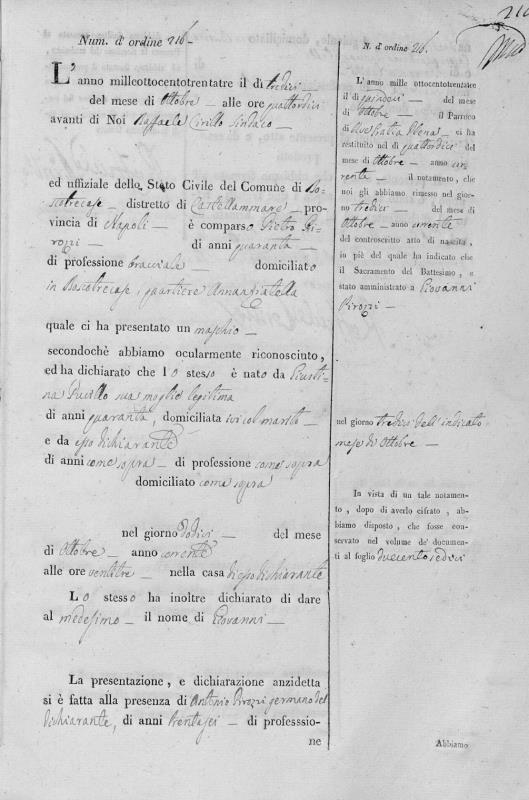 216
Num. d' ordine 216.
L' anno milleottocentotrentatre il dì tredici
del mese di Ottobre alle ore quattordici
avanti di Noi Raffaele Cirillo Sindaco
ed uffiziale dello Stato Civile del Comune di Bo-
scotrecase distretto di Castellammare pro-
vincia di Napoli è comparso Pietro Pi-
rozzi di anni quaranta
di professione bracciale domiciliato
in Boscotrecase, quartiere Annunziatella
quale ci ha presentato un maschio
secondochè abbiamo ocularmente riconosciuto,
ed ha dichiarato che lo stesso è nato da Giusti-
na sua moglie legitima
di anni quaranta, domiciliata ivi col marito
e da esso dichiarante
di anni come sopra di professione come sopra
domiciliato come sopra
nel giorno dodici del mese
di Ottobre anno corrente
alle ore ventitre nella casa di esso dichiarante
Lo stesso ha inoltre dichiarato di dare
al medesimo il nome di Giovanni
La presentazione, e dichiarazione anzidetta
si è fatta alla presenza di Antonio Pirozzi germano del
dichiarante, di anni trentasei di professsio-
ne
N. d' ordine 216.
L' anno mille ottocentotrentatre
il dì quindici del mese
di Ottobre il Parroco
di ci ha
restituito nel dì quattordici del
mese di Ottobre anno cor
rente il notamento, che
noi gli abbiamo rimesso nel gior-
no tredici del mese di
Ottobre anno corrente
del controscritto atto di nascita,
in piè del quale ha indicato che
il Sacramento del Battesimo, è
stato amministrato a Giovanni
Pirozzi
nel giorno tredici dell' indicato
mese di Ottobre
In vista di un tale notamen-
to, dopo di averlo cifrato, ab-
biamo disposto, che fosse con-
servato nel volume de' documen-
ti al foglio duecentosedici
Abbiamo